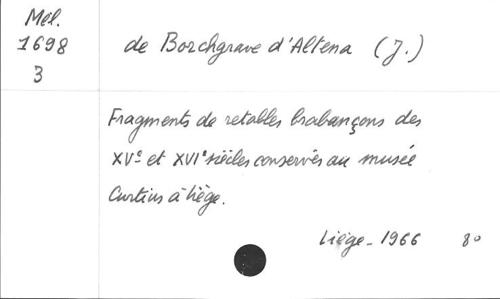 Mél.
1698
3
de Borchgrave d'Altena (J.)
Fragments de retables brabançons des
XVe et XVIe siècles conservés au musée
Curtius à Liège.
Liège - 1966 8°